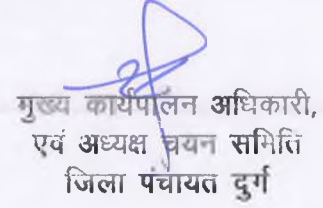 मुख्य कार्यपालन अधिकारी,
एवं अध्यक्ष चयन समिति
जिला पंचायत दुर्ग